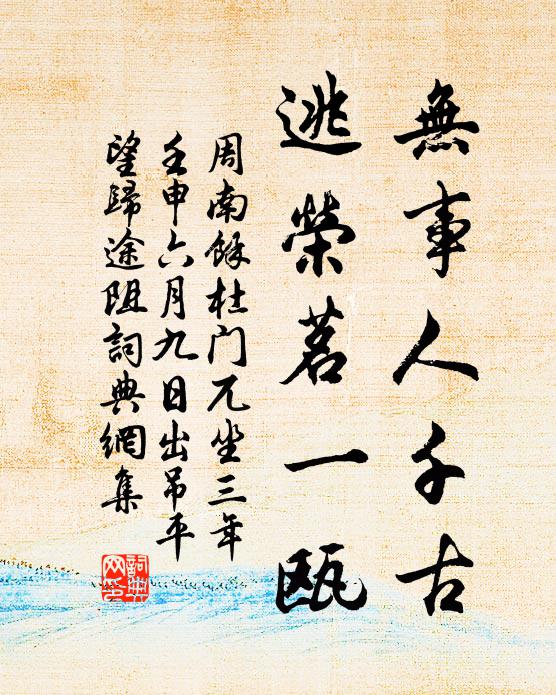 無事人千古
逃榮茗一瓯
周南餘杜门兀坐三年
壬申六月九日出吊平
望歸途阻詞典網集
詞典
网